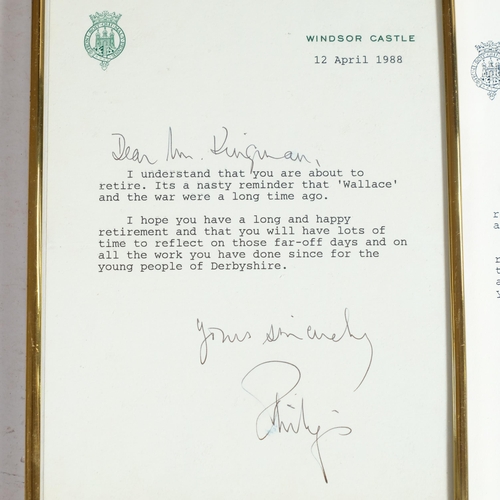 WINDSOR CASTLE
12 April 1988
Dear Mr. Kingman,
I understand that you are about to
retire. Its a nasty reminder that 'Wallace'
and the war were a long time ago.
I hope you have a long and happy
retirement and that you will have lots of
time to reflect on those far-off days and on
all the work you have done since for the
young people of Derbyshire.
Yours sincerely
Philip